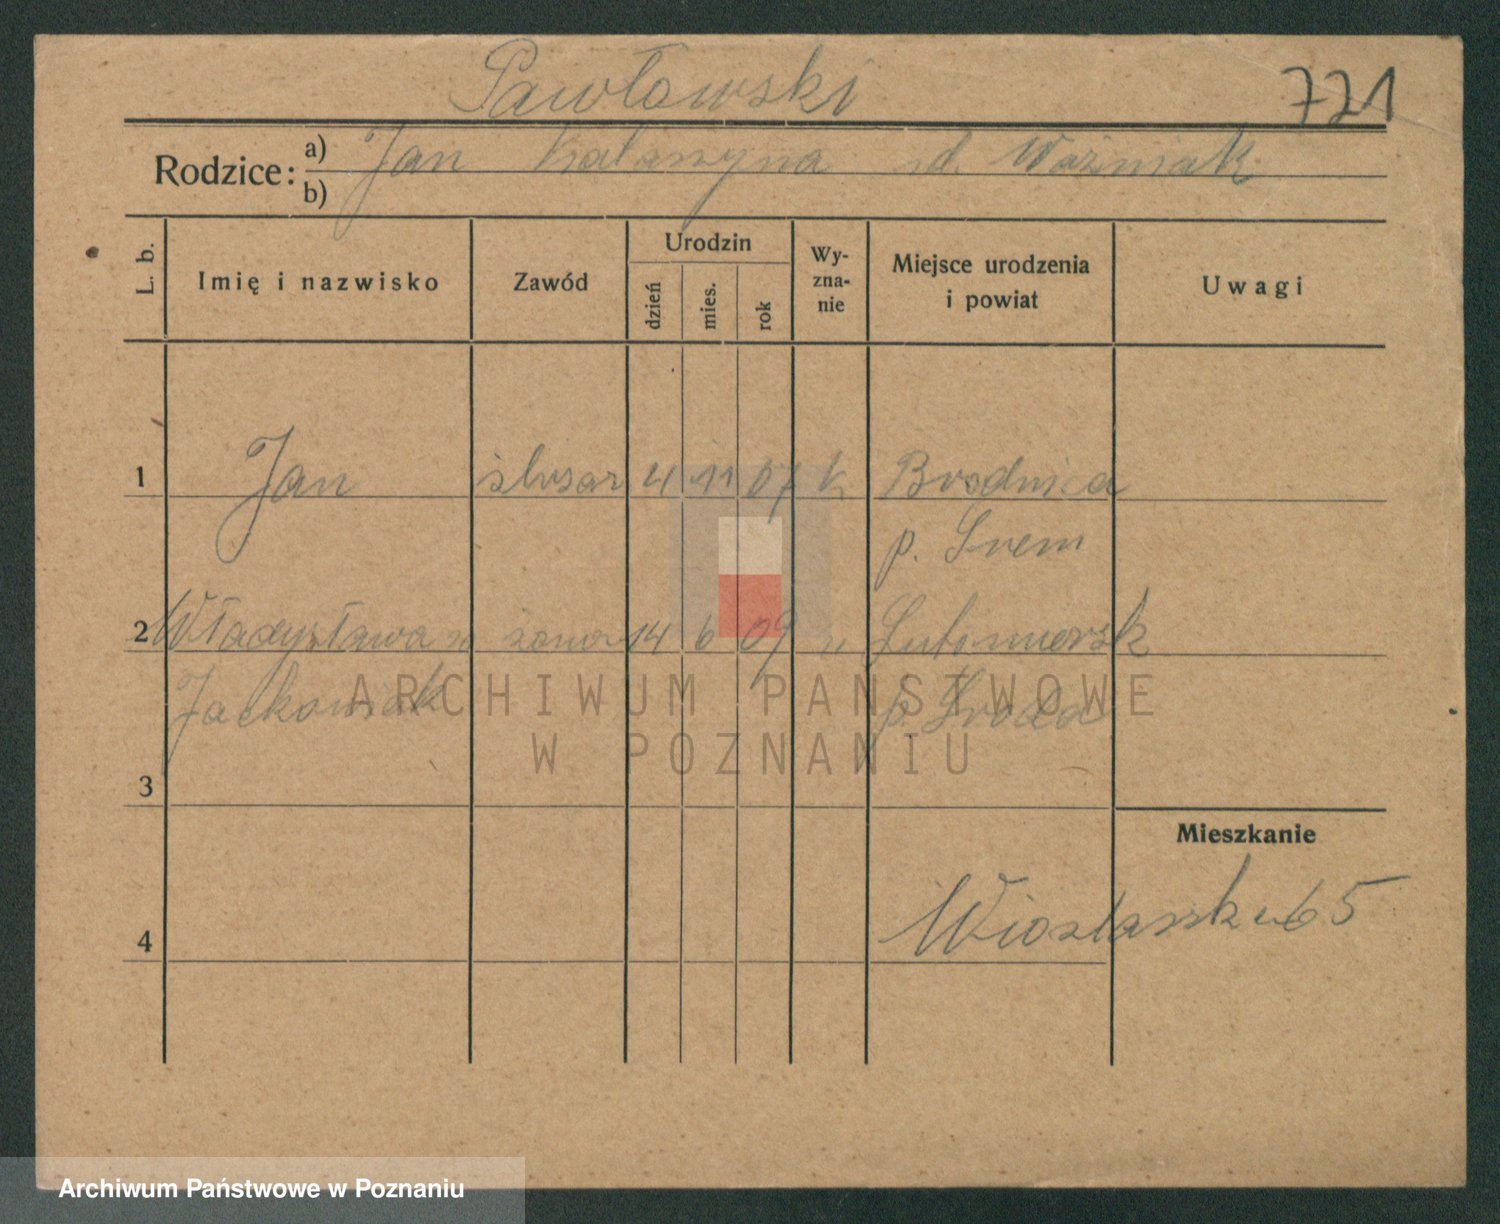 Pawłowski
721
Rodzice:
a) Jan Katarzyna zd. Woźniak
b)
L. b.
Imię i nazwisko
Zawód
Urodzin
dzień
mies.
rok
Wy-
zna-
nie
Miejsce urodzenia
i powiat
Uwagi
1 Jan ślusar 4 11 07 k Brodnica
p. Śrem
2 Władysława z żona 14 6 09 "
Jackowiak p. Środa
3
Mieszkanie
4
65
ARCHIWUM PAŃSTWOWE
W POZNANIU
Archiwum Państwowe w Poznaniu